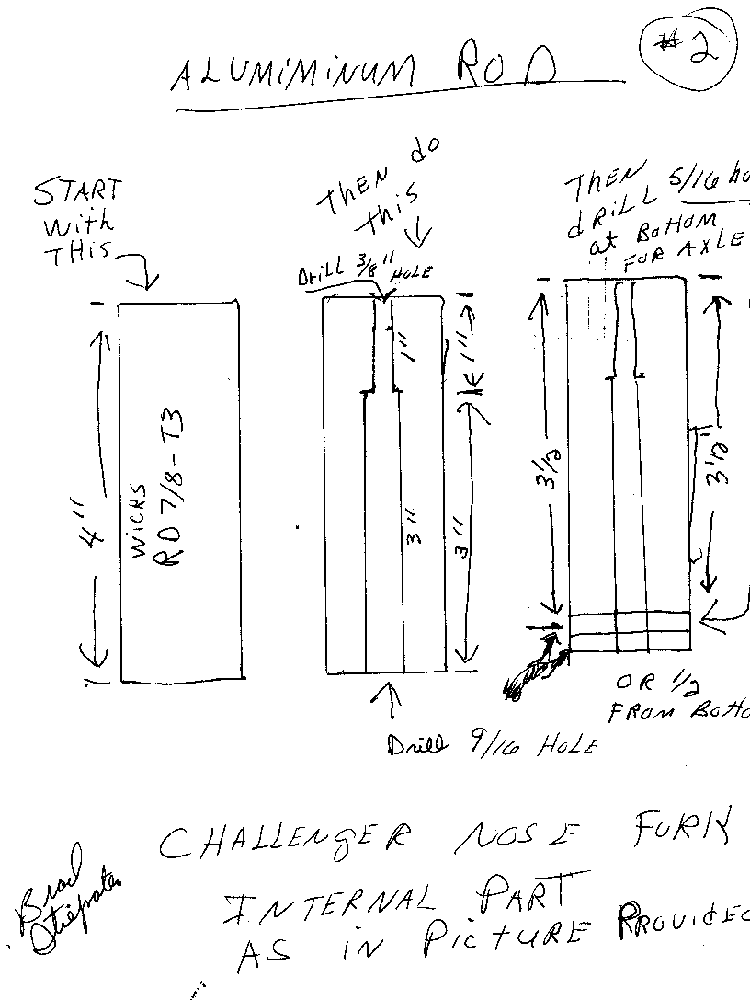 #2
ALUMIMINUM ROD
START
With
THIS
THEN do
this
Drill 3/8" HOLE
THEN
dRILL 5/16 ho
at BOTTOM
FOR AXLE
4"
WICKS
RD 7/8-T3
1"
1"
3"
3"
3 1/2
3 1/2"
OR 1/2
FROM BOTTO
Drill 9/16 HOLE
CHALLENGER NOSE FORK
INTERNAL PART
AS IN PICTURE PROVIDED
Brad